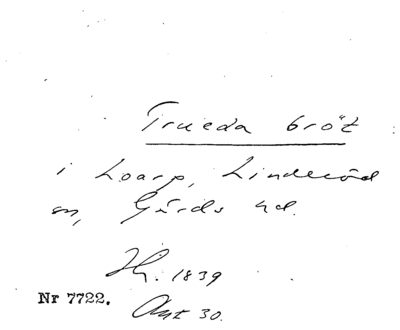 Trueda bröt
i Loarp, Linderöd
sn, Gärds hd.
Hy. 1839
Nr 7722.
Ant 30.